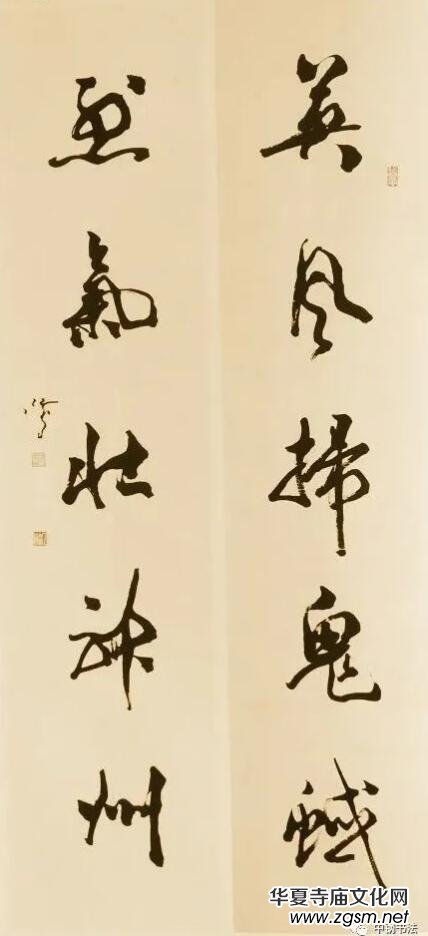 英风掃鬼蜮
烈氣壮神州
华夏寺庙文化网
www.zgsm.net
中协书法